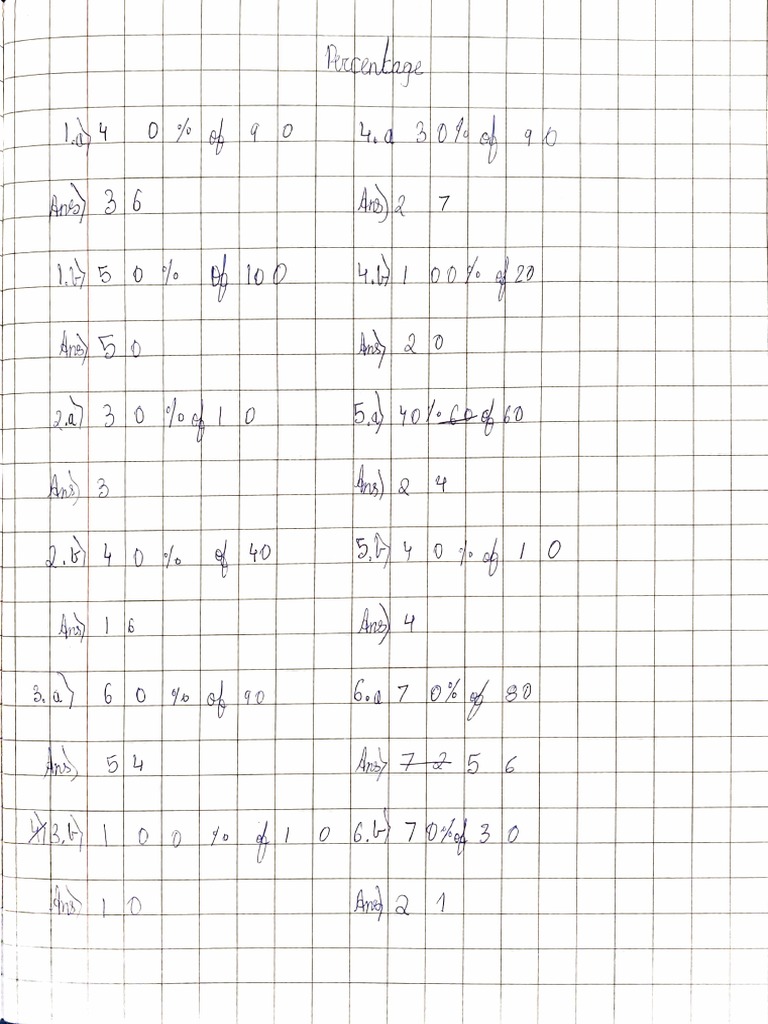 Percentage
1.a) 40% of 90
Ans) 36
1.b) 50% of 100
Ans) 50
2.a) 30% of 10
Ans) 3
2.b) 40% of 40
Ans) 16
3.a) 60% of 90
Ans) 54
4) 3.b) 100% of 10
Ans) 10
4.a 30% of 90
Ans) 27
4.b) 100% of 20
Ans) 20
5.a) 40% 60 of 60
Ans) 24
5.b) 40% of 10
Ans) 4
6.a 70% of 80
Ans) 72 56
6.b) 70% of 30
Ans) 21